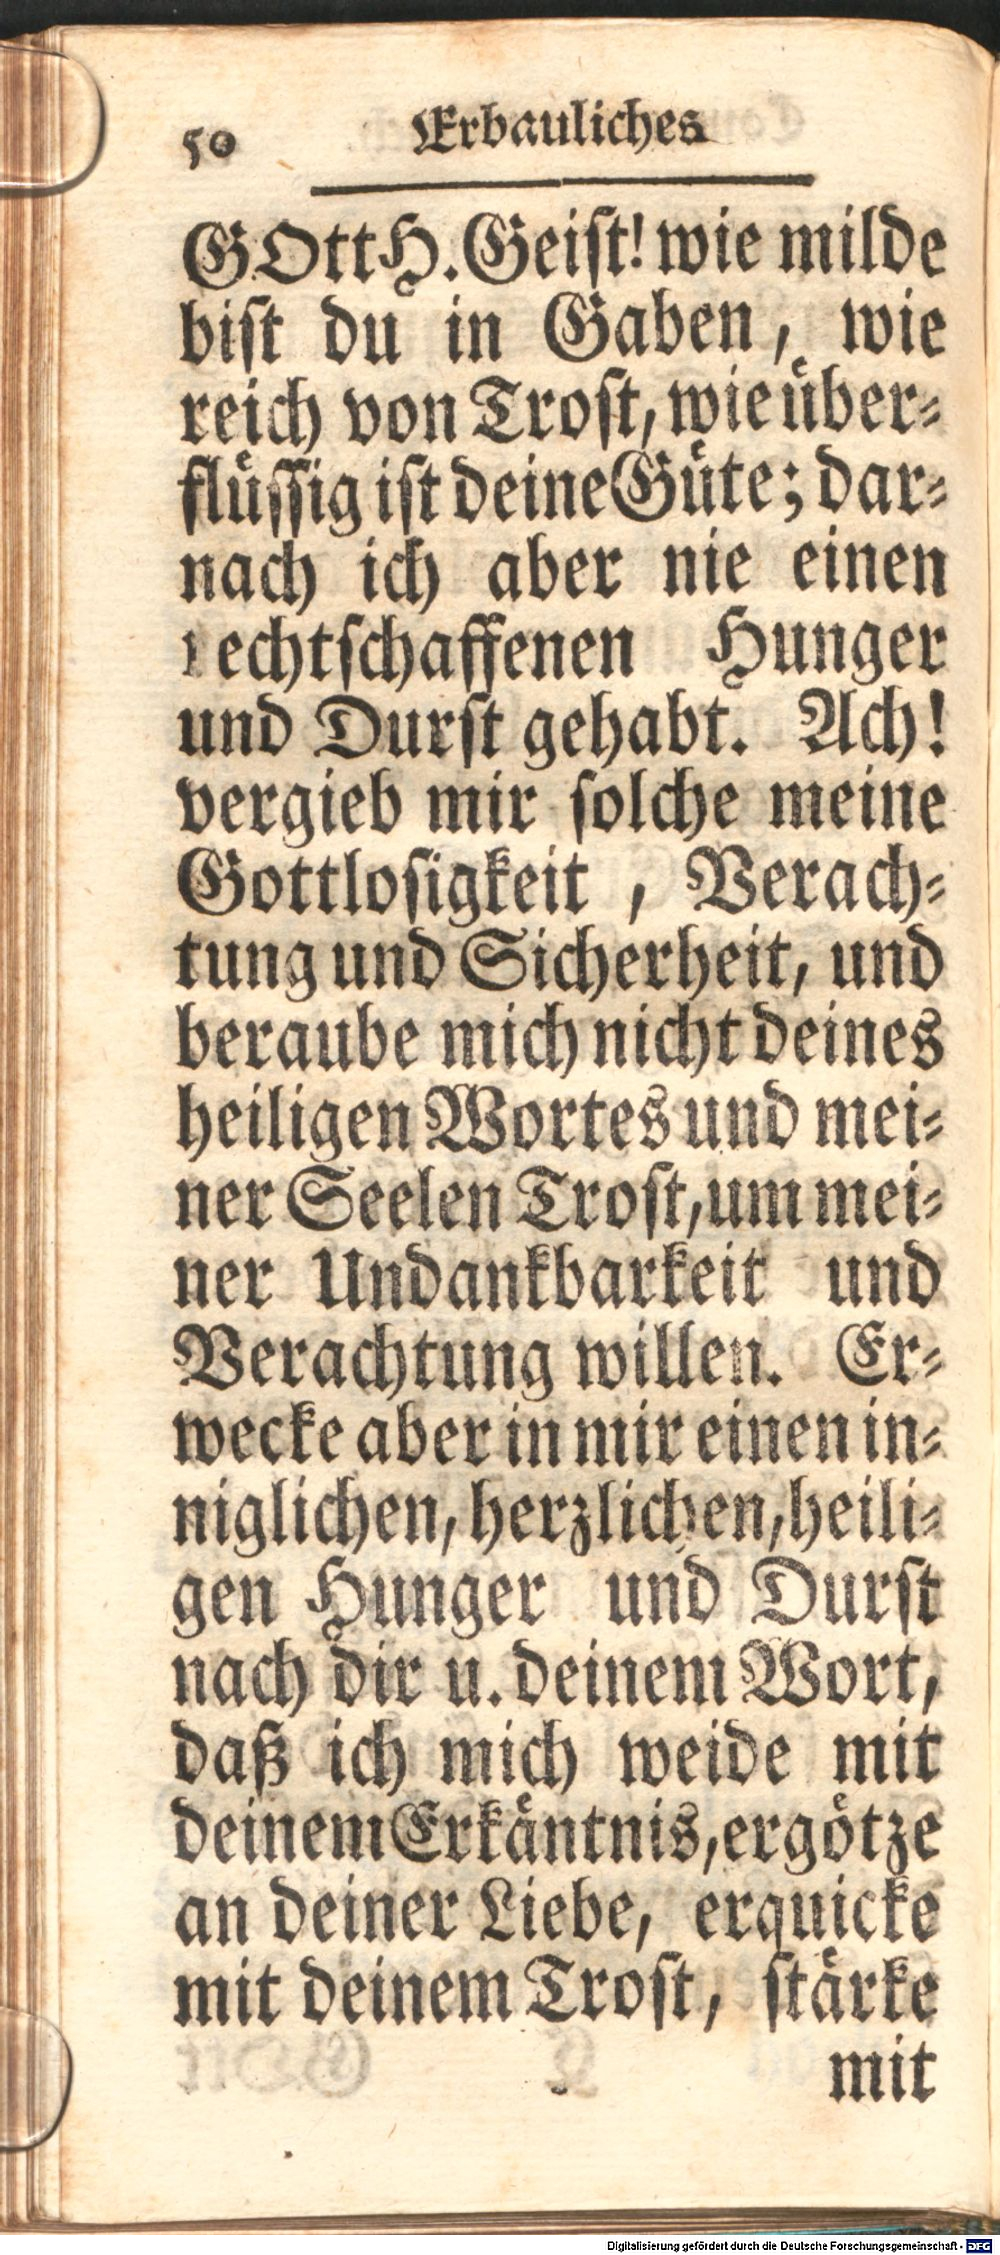 50 Erbauliches
GOtt H. Geist! wie milde
bist du in Gaben, wie
reich von Trost, wie über-
flüssig ist deine Güte; dar-
nach ich aber nie einen
rechtschaffenen Hunger
und Durst gehabt. Ach!
vergieb mir solche meine
Gottlosigkeit, Verach-
tung und Sicherheit, und
beraube mich nicht deines
heiligen Wortes und mei-
ner Seelen Trost, um mei-
ner Undankbarkeit und
Verachtung willen. Er-
wecke aber in mir einen in-
niglichen, herzlichen, heili-
gen Hunger und Durst
nach dir u. deinem Wort,
daß ich mich weide mit
deinem Erkäntnis, ergötze
an deiner Liebe, erquicke
mit deinem Trost, stärke
mit
Digitalisierung gefördert durch die Deutsche Forschungsgemeinschaft - DFG